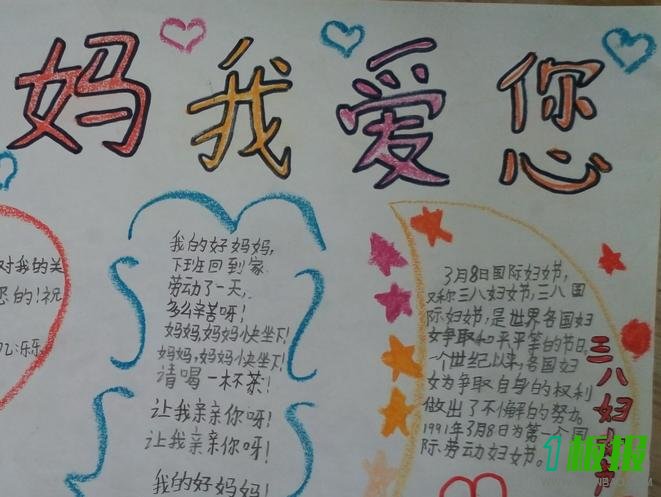 妈我爱您
对我的关
您的!祝
儿:乐乐
我的好妈妈,
下班回到家
劳动了一天,
多么辛苦呀!
妈妈,妈妈快坐下!
妈妈,妈妈快坐下!
请喝一杯茶!
让我亲亲你呀!
让我亲亲你呀!
我的好妈妈!
3月8日国际妇女节,
又称三八妇女节,三八国
际妇女节,是世界各国妇
女争取和平平等的节日,
一个世纪以来,各国妇
女为争取自身的权利
做出了不懈的努力。
1991年3月8日为第一个国
际劳动妇女节。
三八妇女
1板报